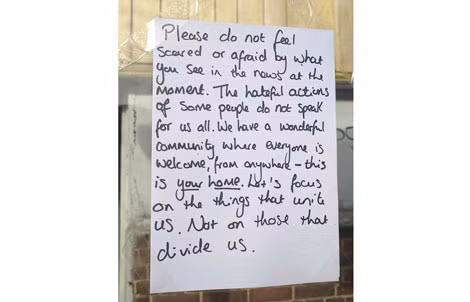 Please do not feel
scared or afraid by what
you see in the news at the
moment. The hateful actions
of some people do not speak
for us all. We have a wonderful
community where everyone is
welcome, from anywhere - this
is your home. Let's focus
on the things that unite
us. Not on those that
divide us.